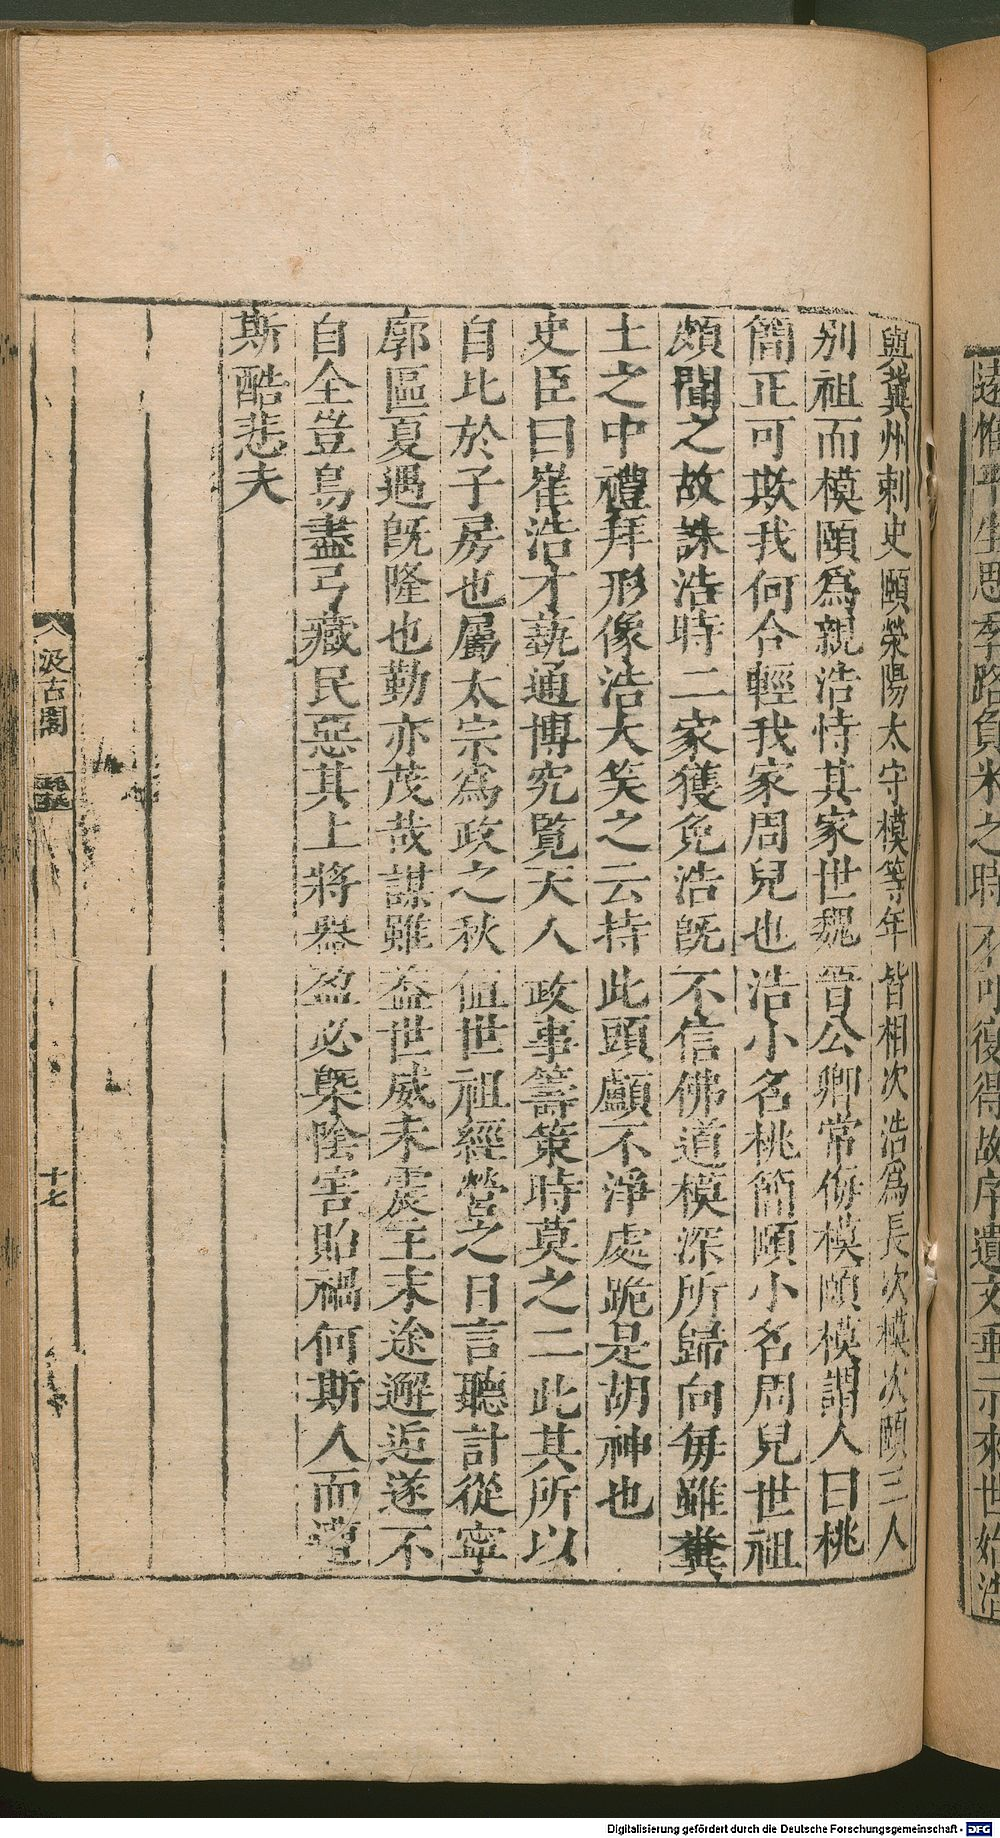 遠惟平生思季路負米之時不可復得故序遺文垂示來世始浩
與冀州刺史頤滎陽太守模等年皆相次浩爲長次模次頤三人
别祖而模頤爲親浩恃其家世魏晉公卿常侮模頤模謂人曰桃
簡正可欺我何合輕我家周兒也浩小名桃簡頤小名周兒世祖
頗聞之故誅浩時二家獲免浩旣不信佛道模深所歸向毎雖糞
土之中禮拜形像浩大笑之云持此頭顱不淨處跪是胡神也
史臣曰崔浩才藝通博究覽天人政事籌策時莫之二此其所以
自比於子房也屬太宗爲政之秋值世祖經營之日言聽計從寧
廓區夏遇旣隆也勤亦茂哉謀雖蓋世威未震主末途邂逅遂不
自全豈鳥盡弓藏民惡其上將器盈必槩陰害貽禍何斯人而遭
斯酷悲夫
汲古閣
十七
Digitalisierung gefördert durch die Deutsche Forschungsgemeinschaft - DFG